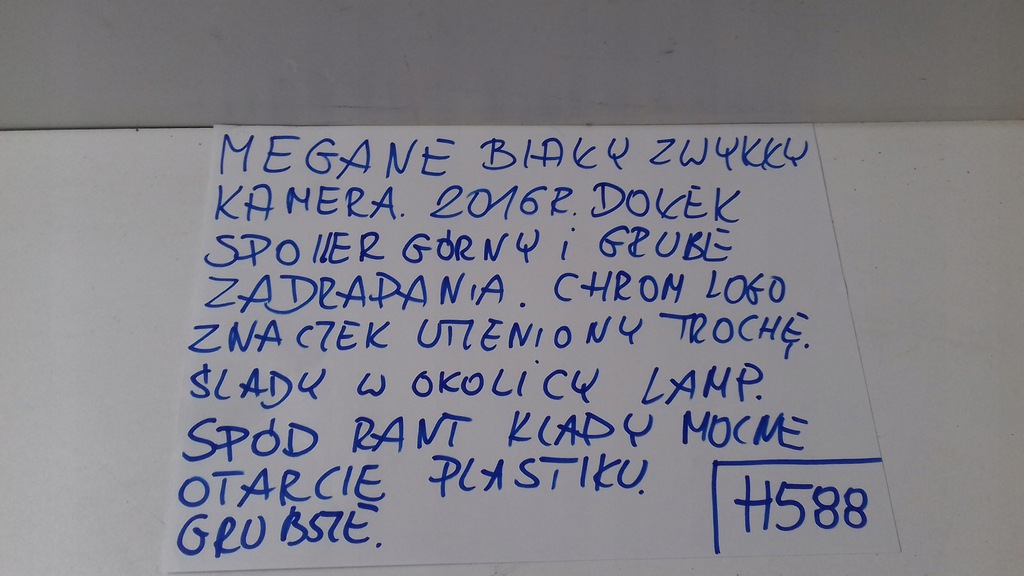 MEGANE BIAŁY ZWYKŁY
KAMERA. 2016R. DOŁEK
SPOILER GÓRNY i GRUBE
ZADRAPANIA. CHROM LOGO
ZNACZEK UTLENIONY TROCHĘ.
ŚLADY W OKOLICY LAMP.
SPÓD RANT KLAPY MOCNE
OTARCIE PLASTIKU.
GRUBSZE.
H588